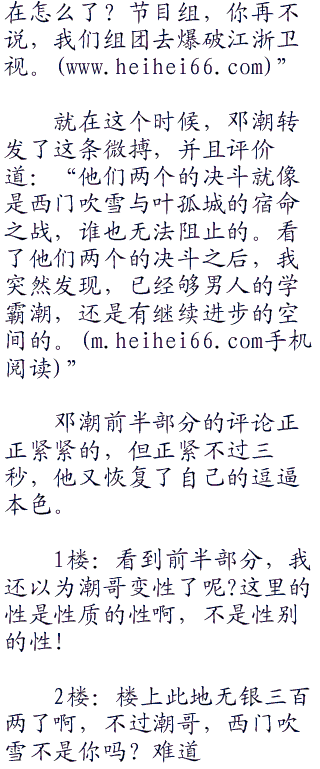 在怎么了？节目组，你再不
说，我们组团去爆破江浙卫
视。(www.heihei66.com)”
就在这个时候，邓潮转
发了这条微搏，并且评价
道：“他们两个的决斗就像
是西门吹雪与叶孤城的宿命
之战，谁也无法阻止的。看
了他们两个的决斗之后，我
突然发现，已经够男人的学
霸潮，还是有继续进步的空
间的。(m.heihei66.com手机
阅读)”
邓潮前半部分的评论正
正紧紧的，但正紧不过三
秒，他又恢复了自己的逗逼
本色。
1楼：看到前半部分，我
还以为潮哥变性了呢?这里的
性是性质的性啊，不是性别
的性!
2楼：楼上此地无银三百
两了啊，不过潮哥，西门吹
雪不是你吗？难道